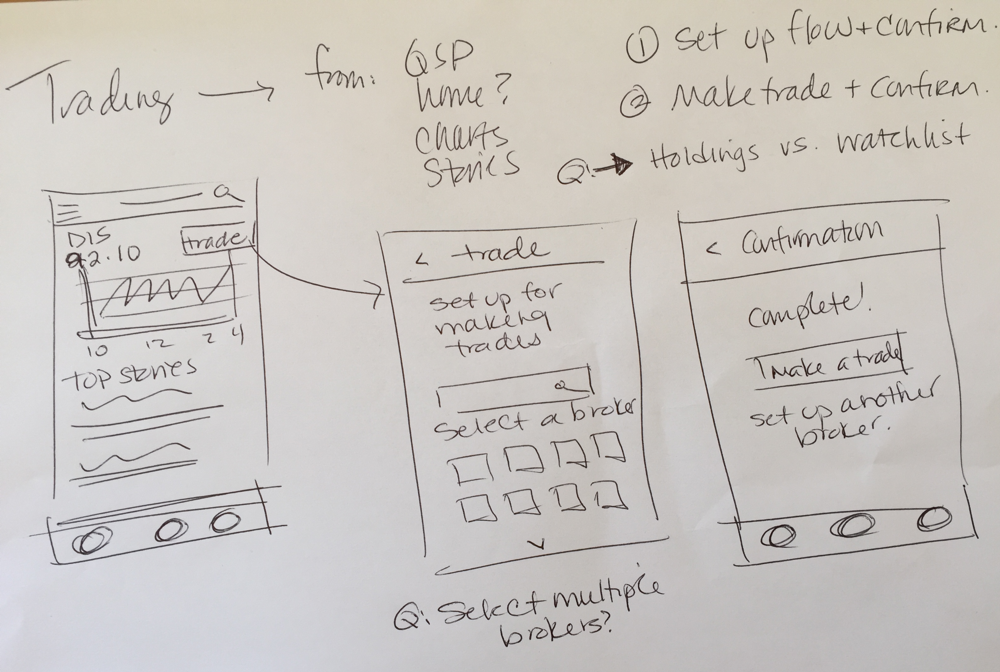 Trading → from: QSP
home?
charts
Stories
① Set up flow + confirm.
② Make trade + confirm.
Q: → Holdings vs. watchlist
DIS
92.10
trade
10 12 2 4
top stories
< trade
set up for
making
trades
Select a broker
Q: Select multiple
brokers?
< Confirmation
complete!
make a trade
set up another
broker.